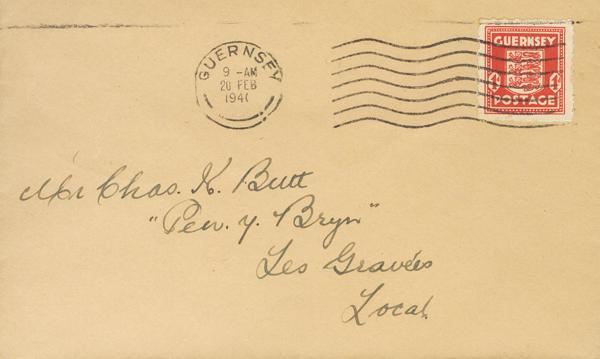 GUERNSEY
9 - AM
20 FEB
194
GUERNSEY
1D 1D
POSTAGE
Mr Chas. K. Butt
"Pen. y. Bryn"
Les Gravées
Local.